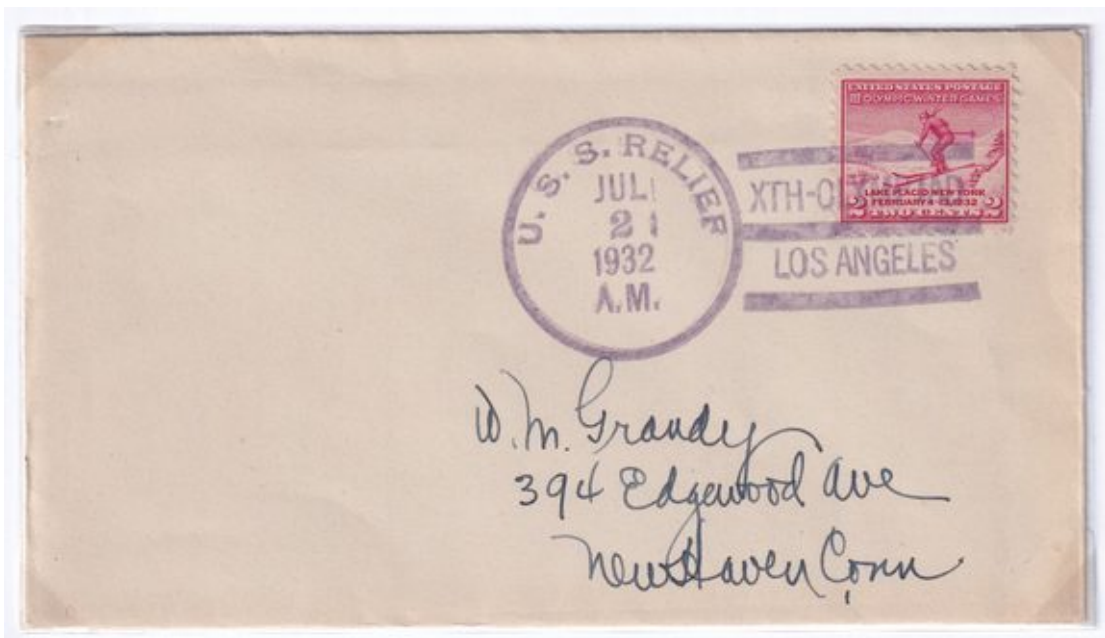 UNITED STATES POSTAGE
OLYMPIC WINTER GAMES
LAKE PLACID NEW YORK
FEBRUARY 4-13, 1932
2 TWO CENTS 2
U. S. S. RELIEF
JUL
21
1932
A.M.
XTH-OLYMPIAD
LOS ANGELES
W. M. Grandy
394 Edgewood Ave
New Haven Conn